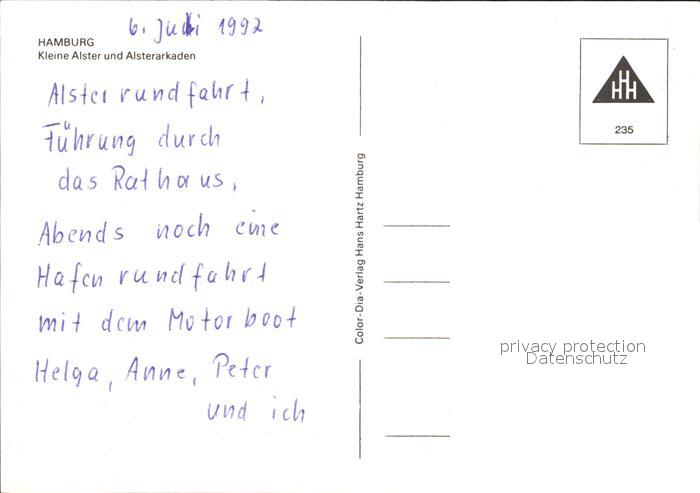 6. Juli 1992
HAMBURG
Kleine Alster und Alsterarkaden
Alsterrundfahrt,
Führung durch
das Rathaus,
Abends noch eine
Hafenrundfahrt
mit dem Motorboot
Helga, Anne, Peter
und ich
Color-Dia-Verlag Hans Hartz Hamburg
HHH
235
privacy protection
Datenschutz